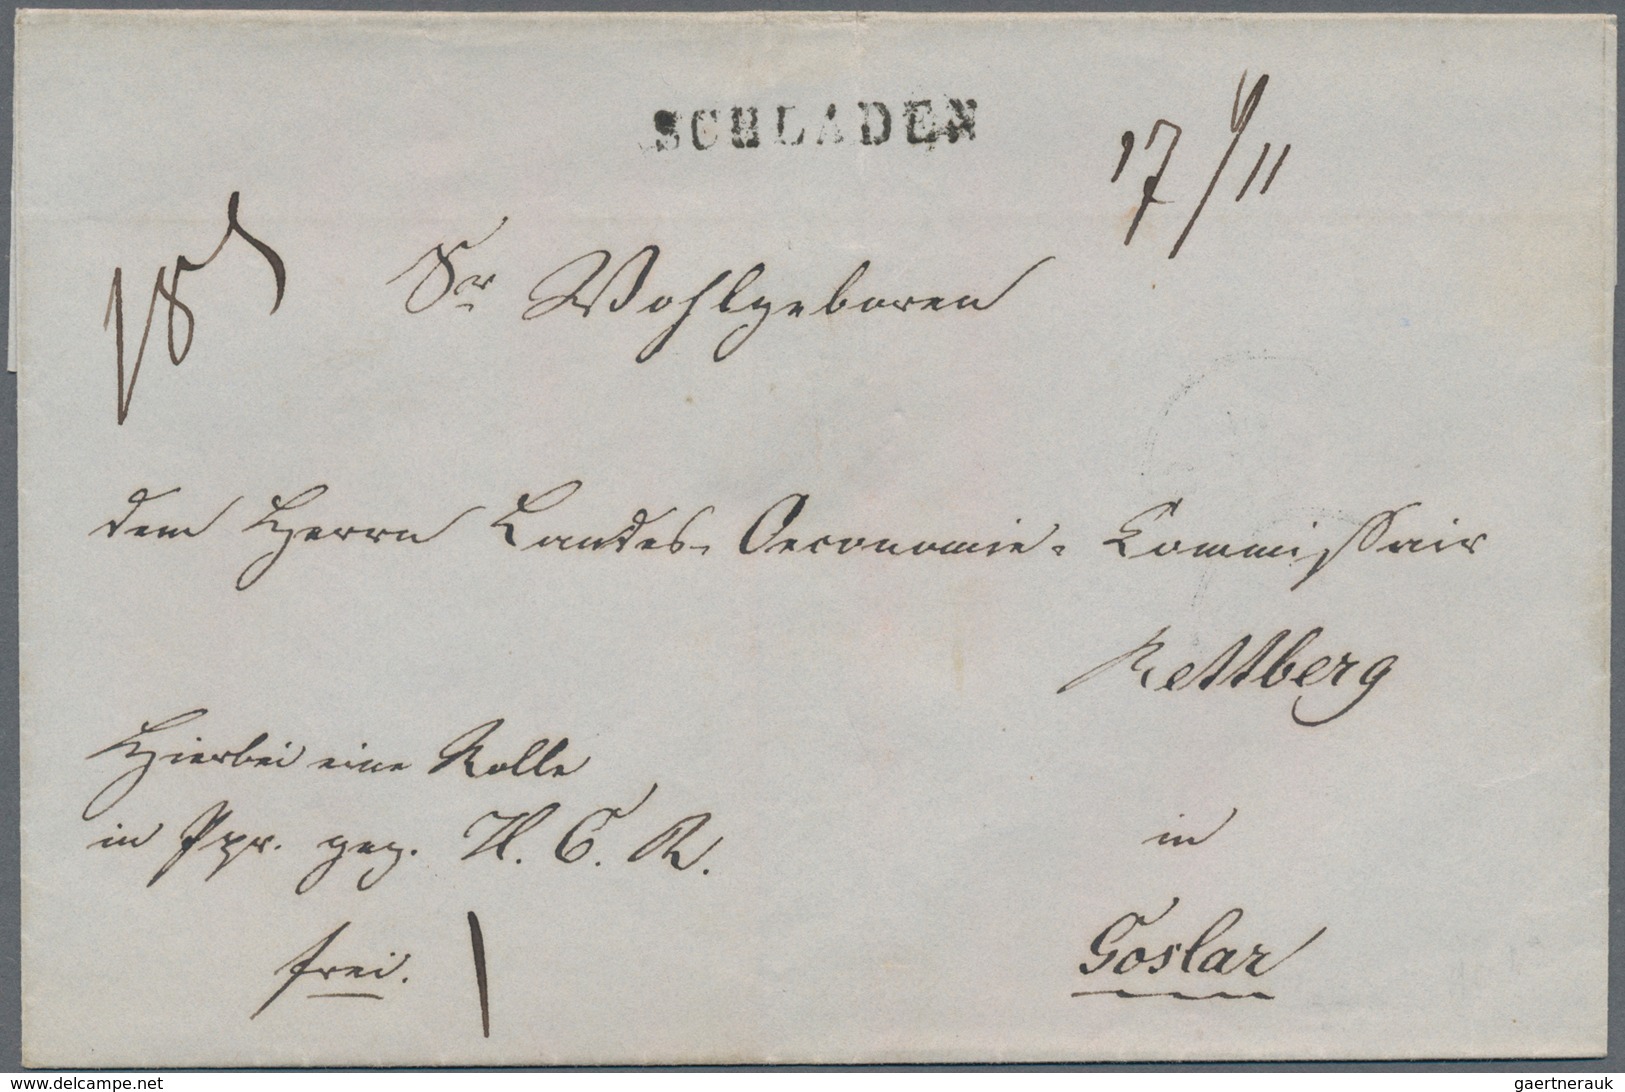 SCHLADEN
17/11
18
Sr Wohlgeboren
dem Herrn Landes-Oeconomie-Commissair
Rettberg
Hierbei eine Rolle
in Ppr. gez. H. C. R.
in
frei.
Goslar
www.delcampe.net
gaertnerauk